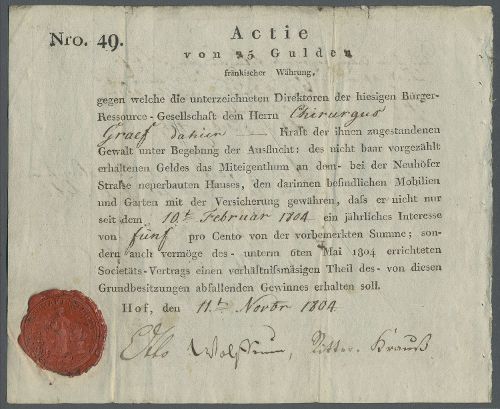 Nro. 49.
Actie
von 25 Gulden
fränkischer Währung,
gegen welche die unterzeichneten Direktoren der hiesigen Bürger-
Ressource-Gesellschaft dem Herrn Chirurgus
Graef dahier Kraft der ihnen zugestandenen
Gewalt unter Begebung der Ausflucht: des nicht baar vorgezählt
erhaltenen Geldes das Miteigenthum an dem- bei der Neuhöfer
Strasse neuerbauten Hauses, den darinnen befindlichen Mobilien
und Garten mit der Versicherung gewähren, daß er nicht nur
seit dem 10t. Februar 1804 ein jährliches Interesse
von fünf pro Cento von der vorbemerkten Summe; son-
dern auch vermöge des- unterm 6ten Mai 1804 errichteten
Societäts-Vertrags einen verhältnißmäsigen Theil des- von diesen
Grundbesitzungen abfallenden Gewinnes erhalten soll.
Hof, den 11t. Novbr 1804
Ritter. Krauß